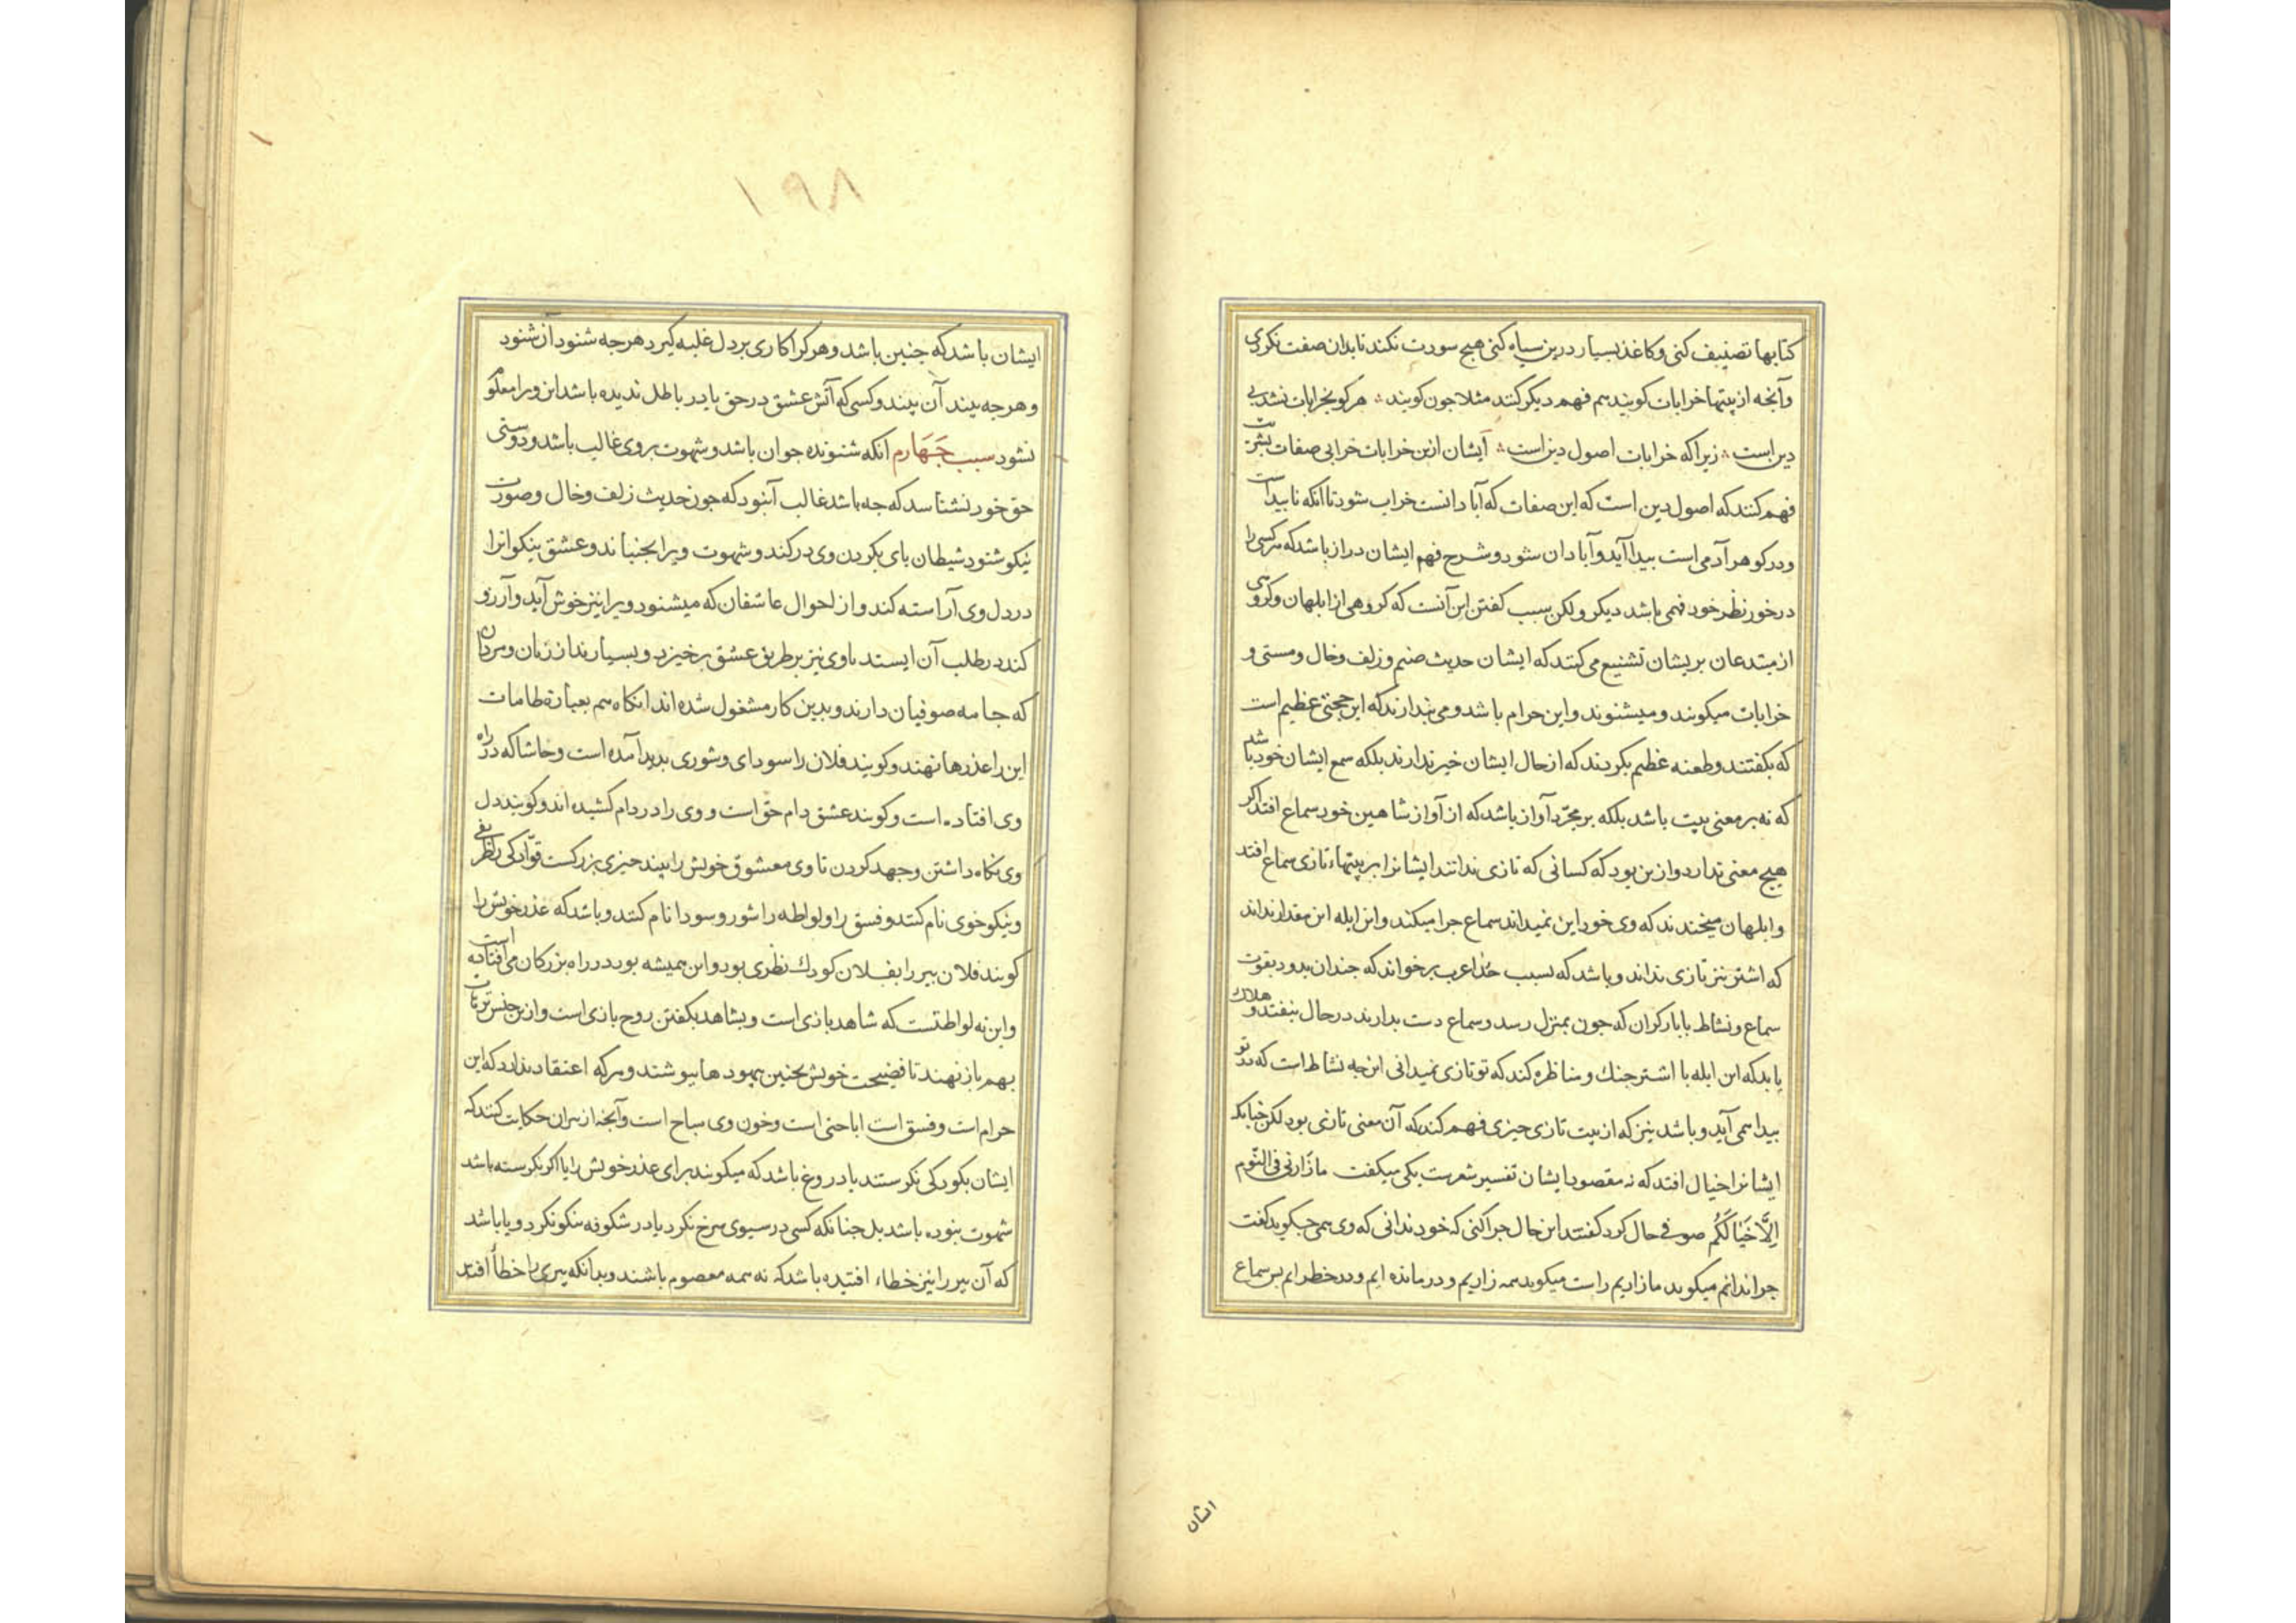 کتابها تصنیف کنی و کاغذ بسیار درین سیاه کنی هیچ سورت نکند تا بدان صفت نکردی
وآنجه از بیتها خرابات کویند هم فهم دیکر کنند مثلا جون کویند هرکو بخرابات نشد بی
دین است زیرا که خرابات اصول دین است ایشان ازین خرابات خرابی صفات بشریت
فهم کنند که اصول دین است که این صفات که آبادانست خراب شود تا آنکه نابیداست
ودر کوهر آدمی است بیدا آید و آبادان شود و شرح فهم ایشان دراز باشد که هر کسی را
درخور نظر خود فهمی باشد دیکر ولکن سبب کفتن این آنست که کروهی از ابلهان وکروهی
از مبتدعان بریشان تشنیع می کنند که ایشان حدیث صنم و زلف وخال ومستی و
خرابات میکویند و میشنوند واین حرام باشد و می بندارند که این حجتی عظیم است
که بکفتند وطعنه عظیم بکردند که از حال ایشان خبر ندارند بلکه سمع ایشان خود باشد
که نه بر معنی بیت باشد بلکه بر مجرّد آواز باشد که از آواز شاهین خود سماع افتد اکر
هیچ معنی ندارد وازین بود که کسانی که تازی ندانند ایشانرا بر بیتهاء تازی سماع افتد
وابلهان میخندند که وی خود این نمیداند سماع جرا میکند واین ابله این مقدار نداند
که اشتر نیز تازی نداند و باشد که بسبب حُداء عرب برخواند که جندان بدود بقوت
سماع ونشاط با بار کران که جون بمنزل رسد وسماع دست بدارند در حال بیفتد و هلاک
باید که این ابله با اشتر جنک و مناظره کند که تو تازی نمیدانی این جه نشاط است که در تو
بیدا می آید و باشد نیز که از بیت تازی جیزی فهم کند که آن معنی تازی بود لکن جنانک
ایشانرا خیال افتد که نه مقصود ایشان تفسیر شعرست یکی میکفت ما زارنی فی النّوم
اِلاَّ خَیَالَکُم صوفی حال کرد کفتند این حال جرا کنی که خود ندانی که وی همی جیکوید کفت
جرا ندانم میکوید ما زاریم راست میکوید همه زاریم و درمانده ایم ودر خطر ایم بس سماع
ایشان
۱۹۸
ایشان باشد که جنین باشد وهرکرا کاری بر دل غلبه کیرد هرجه شنود آن شنود
وهرجه بیند آن بیند وکسی که آتش عشق در حق یا در باطل ندیده باشد این ویرا معلوم
نشود سبب جَهَارم آنکه شنونده جوان باشد وشهوت بروی غالب باشد ودوستی
حق خود نشناسد که جه باشد غالب آنبود که جون حدیث زلف وخال وصورت
نیکو شنود شیطان بای بکردن وی درکند وشهوت ویرا بجنباند وعشق نیکوانرا
در دل وی آراسته کند واز احوال عاشقان که میشنود ویرا نیز خوش آید وآرزو
کند در طلب آن ایستد تا وی نیز بر طریق عشق برخیزد وبسیارند از زنان ومردان
که جامه صوفیان دارند وبدین کار مشغول شده اند آنکاه هم بعبارة طامات
این را عذرها نهند وکویند فلان را سودای وشوری بدید آمده است وحاشاکه در راه
وی افتاده است وکویند عشق دام حق است و وی را در دام کشیده اند وکویند دل
وی نکاه داشتن وجهد کردن تا وی معشوق خویش را بیند جیزی بزرکست قوّادکی را ظریفی
ونیکو خوی نام کنند وفسق را ولواطه را شور وسودا نام کنند وباشد که عذر خویش را
کویند فلان بیر را بفلان کودک نظری بود واین همیشه بود در راه بزرکان می افتاده است
واین نه لواطتست که شاهد بازی است وبشاهد بکفتن روح بازی است وازین جنس ترهات
بهم باز نهند تا فضیحت خویش بجنین بیهودها ببوشند وهرکه اعتقاد ندارد که این
حرام است وفسق است اباحتی است وخون وی مباح است وآنجه از بیران حکایت کنند که
ایشان بکودکی نکرستند یا دروغ باشد که میکویند برای عذر خویش را یا اکر نکرسته باشد
شهوت نبوده باشد بل جنانکه کسی در سیبوی سرخ نکرد یا در شکوفه نیکو نکرد ویا باشد
که آن بیر را نیز خطاء افتیده باشد که نه همه معصوم باشند وبدانکه بیری را خطاً افتد